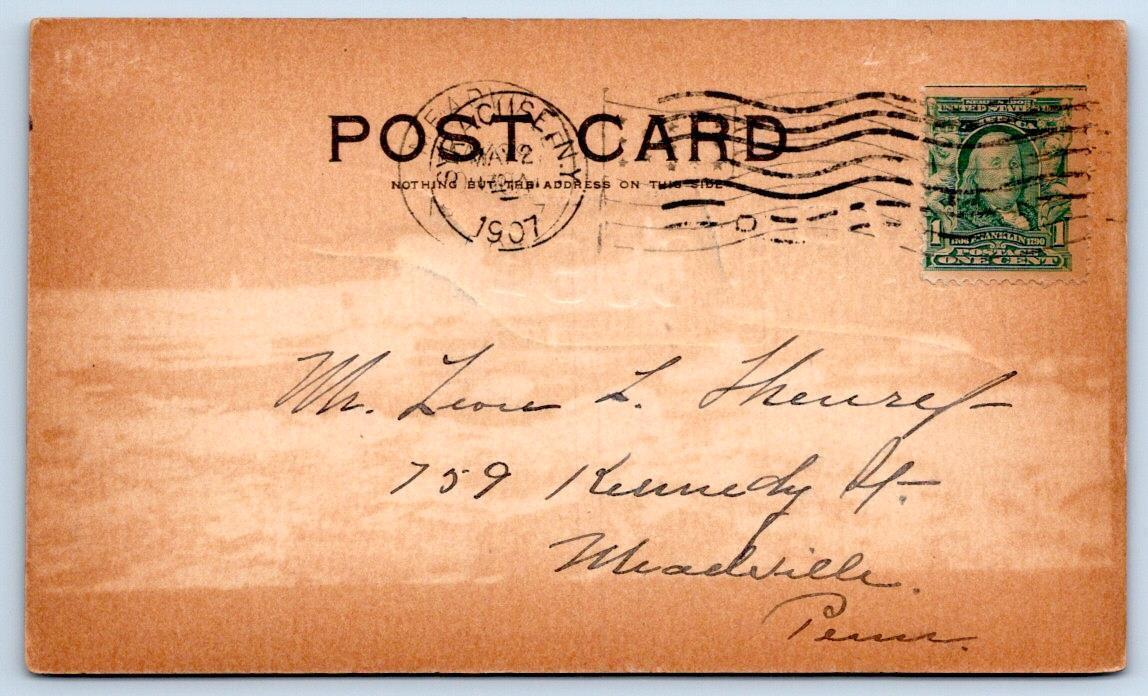 POST CARD
NOTHING BUT THE ADDRESS ON THIS SIDE
SYRACUSE, N.Y.
MAY 2
1907
SERIES 1902
UNITED STATES OF AMERICA
1 1706 FRANKLIN 1790 1
POSTAGE
ONE CENT
Mr. L.
759 Kennedy St.
Meadville
Penn.